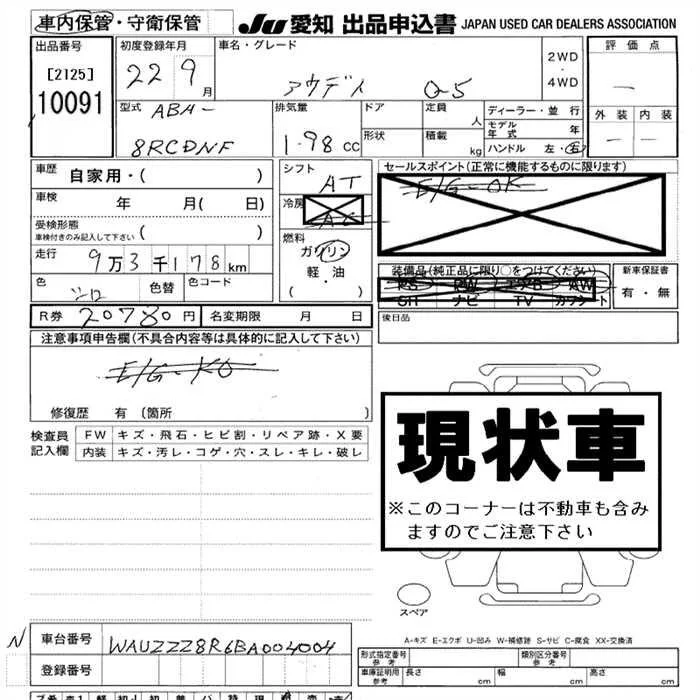 車内保管・守衛保管
JU 愛知 出品申込書 JAPAN USED CAR DEALERS ASSOCIATION
出品番号
[2125]
10091
初度登録年月
22 9月
車名・グレード
アウディ Q-5
2WD
・
4WD
評価点
—
外装 内装
— —
型式 ABA-
8RCDNF
排気量
1.98 CC
ドア
形状
定員 人
積載 kg
ディーラー・並行
モデル年式 年
ハンドル 左・右
車歴 自家用・( )
車検 年 月( 日)
受検形態
車検付きのみ記入して下さい ( )
走行 9万3千178km
色 シロ 色替 色コード
シフト
AT
冷房
AC
燃料
ガソリン
軽・油
( ・ )
セールスポイント(正常に機能するものに限ります)
E/G-OK
装備品(純正品に限り○をつけてください)
PS PW エアB AW
SR ナビ TV カワシート
新車保証書
有・無
R券 20780円 名変期限 月 日
後日品
注意事項申告欄(不具合内容等は具体的に記入して下さい)
E/G-KO
修復歴 有(箇所 )
検査員記入欄
FW キズ・飛石・ヒビ割・リペア跡・X要
内装 キズ・汚レ・コゲ・穴・スレ・キレ・破レ
現状車
※このコーナーは不動車も含み
ますのでご注意下さい
スペア
A-キズ E-エクボ U-凹み W-補修跡 S-サビ C-腐食 XX-交換済
N 車台番号 WAUZZZ8R6BA004004
登録番号
形式指定番号 参考
類別区分番号 参考
車庫証明用 参考 長さ cm 幅 cm 高さ cm